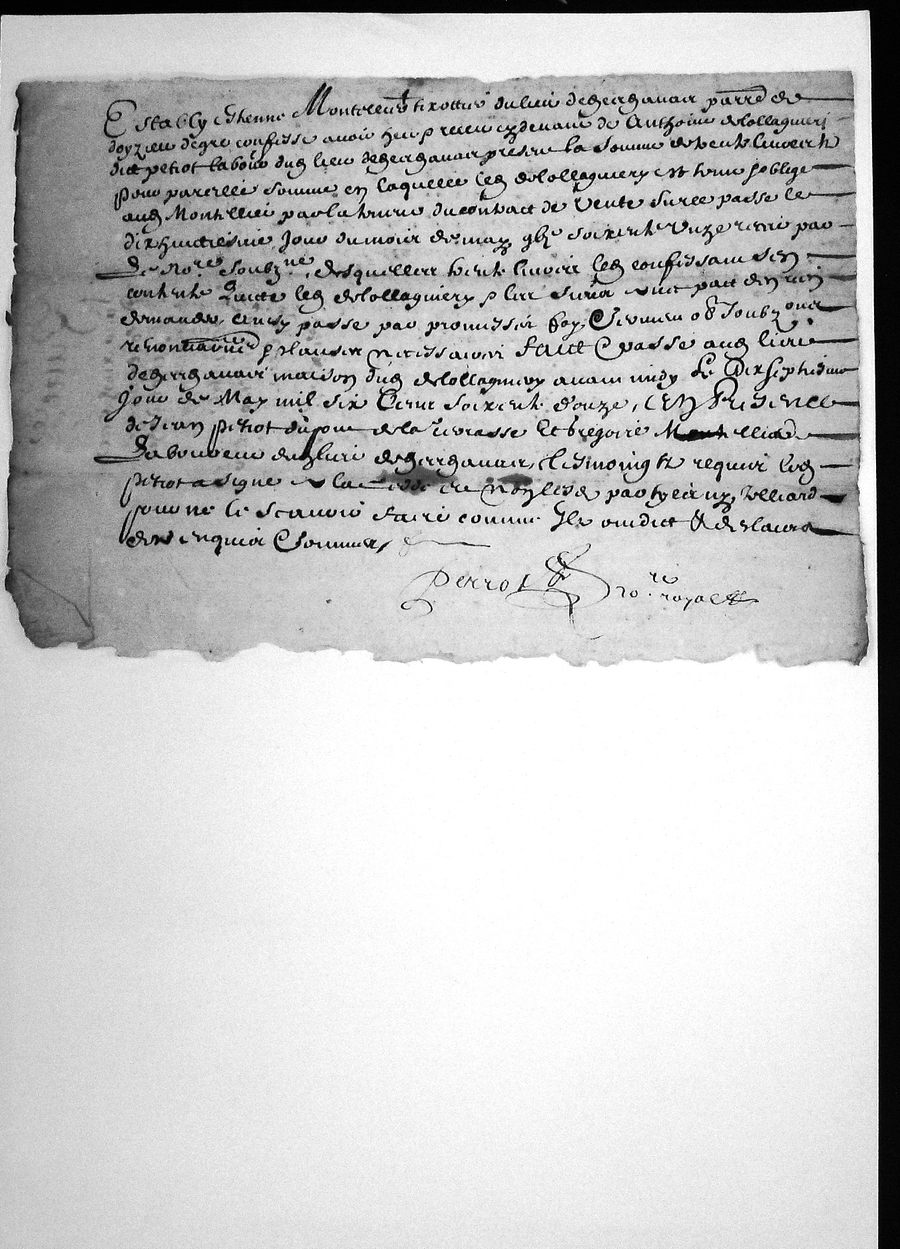 Estably Estienne Montelliard tixottier du lieu de gerganair parr.e de
doyzieu de gre confesse avoir heu et receu cy devant de Anthoine dollaguieri
dict petiot labour dud lieu de gerganair presant la somme de trente livres
pour pareille somme en laquelle led dollaguiery est tenu et oblige
aud Montellier par la teneur du contract de vente sur ce passe le
dix huictiesme Jour du mois de may gbe soixente unze receu par
Le No.re soubz.ne, desquelles trente livres led confessant s'en
contente quicte led dollaguiery et les siens avec pact de n'en rien
demander, Ainsy passe par promission foy, sermen ob soubz
renontiations et clauses necessaires Faict et passe aud lieu
de gerganair maison dud dollaguiery avant midy Le Dixseptiesme
Jour de May mil six Cens soixente douze, En Presence
de Jean petiot du lieu de la terrasse Et gregoire Montelliard
Laboureur dud lieu de gerganair, tesmoingtz requis led
petiot a signe a la non led
pour ne le scavoir faire comme Ilz ont dict et declaire
de ce enquis et sommes
Perrot no.re royal